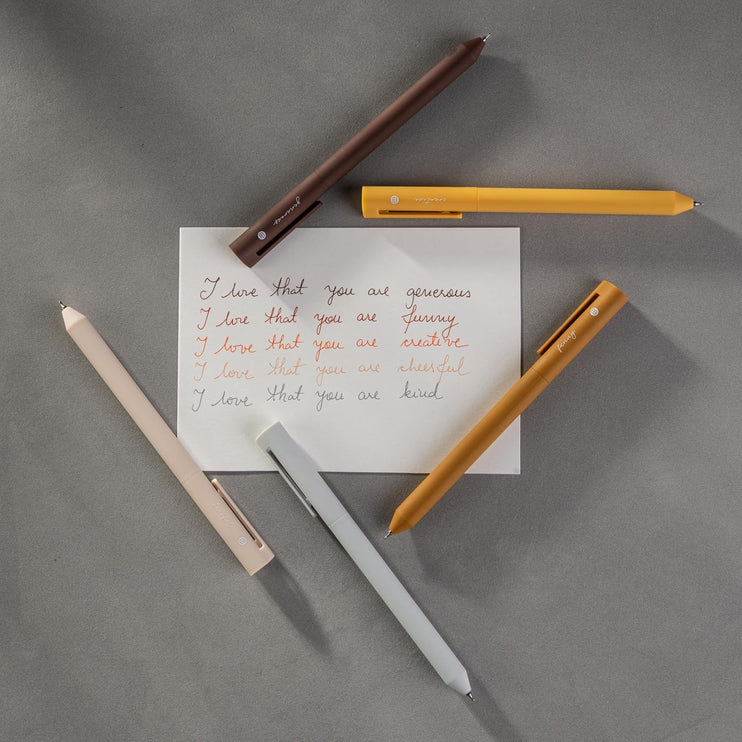 I love that you are generous
I love that you are funny
I love that you are creative
I love that you are cheerful
I love that you are kind
generous
creative
funny